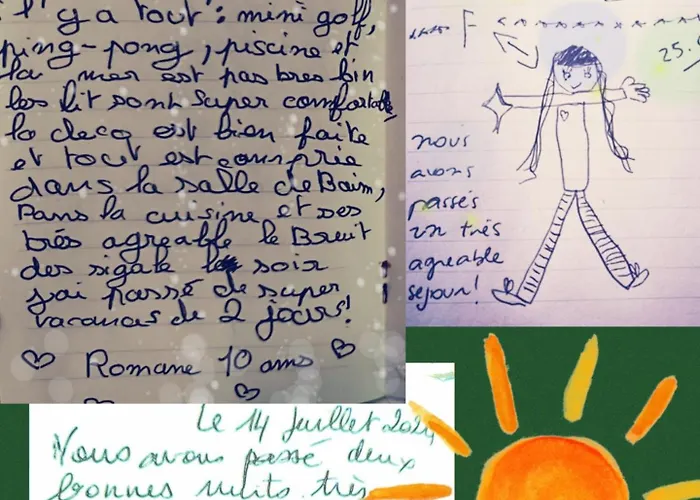 Il y a tout : mini golf,
ping-pong, piscine et
la mer est pas tres lin
les lit sont super confortable
la deco est bien faite
et tout est comprie
dans la salle de Baim,
Dans la cuisine et ses
très agreable le Breuit
des sigale le soir
j'ai passé de super
vacanses de 2 jours!
Romane 10 ans
25.
nous
avons
passés
un très
agreable
sejour!
Le 14 Juillet 2024
Nous avons passé deux
bonnes nuits très